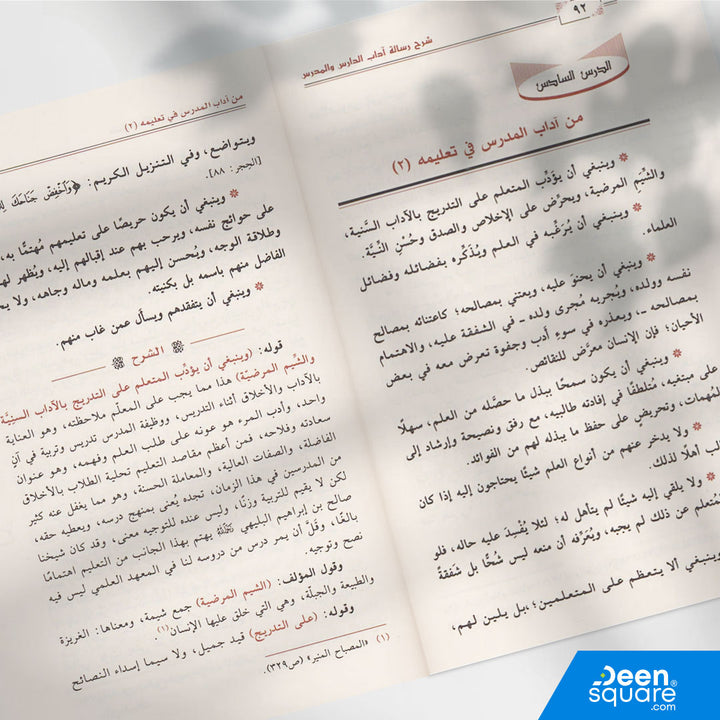 ٩٢
شرح رسالة آداب الدارس والمدرس
الدرس السادس
من آداب المدرس في تعليمه (٢)
* وينبغي أن يؤدِّب المتعلم على التدريج بالآداب السَّنية،
والشِّيَم المرضية، ويحرِّض على الإخلاص والصدق وحُسْنِ النيَّة.
* وينبغي أن يُرَغِّبه في العلم ويُذَكِّره بفضائله وفضائل
العلماء.
* وينبغي أن يحنوَ عليه، ويعتني بمصالحه؛ كاعتنائه بمصالح
نفسه وولده، ويُجريه مُجرى ولده ـ في الشفقة عليه، والاهتمام
بمصالحه ـ، ويعذره في سوءِ أدب وجفوة تعرض معه في بعض
الأحيان؛ فإن الإنسان معرَّض للنقائص.
* وينبغي أن يكون سمحًا ببذل ما حصَّله من العلم، سهلًا
على مبتغيه، مُتلطفًا في إفادته طالبيه، مع رفق ونصيحة وإرشاد إلى
المُهمات، وتحريضٍ على حفظ ما يبذله لهم من الفوائد.
* ولا يدخر عنهم من أنواع العلم شيئًا يحتاجون إليه إذا كان
لب أهلًا لذلك.
* ولا يلقي إليه شيئًا لم يتأهل له؛ لئلا يُفْسِدَ عليه حاله، فلو
لمُتعلم عن ذلك لم يجبه، ويُعَرِّفه أن منعه ليس شُحًّا بل شفقةً
وينبغي ألا يتعظم على المتعلمين؛ بل يلين لهم،
من آداب المدرس في تعليمه (٢)
ويتواضع، وفي التنزيل الكريم: ﴿وَاخْفِضْ جَنَاحَكَ
[الحجر: ٨٨].
* وينبغي أن يكون حريصًا على تعليمهم مُهتمًّا به،
على حوائج نفسه، ويرحب بهم عند إقبالهم إليه، ويُظهر
وطلاقة الوجه، ويُحسن إليهم بعلمه وماله وجاهه، ولا
الفاضل منهم باسمه بل بكنيته.
* وينبغي أن يتفقدهم ويسأل عمن غاب منهم.
الشرح
قوله: (وينبغي أن يؤدِّب المتعلم على التدريج بالآداب السَّنِيَّة
والشِّيَم المرضِيَّة) هذا مما يجب على المعلِّم ملاحظته، وهو العناية
بالآداب والأخلاق أثناء التدريس، ووظيفة المدرس تدريس وتربية في آنٍ
واحد، وأدب المرء هو عونه على طلب العلم وفهمه، وهو عنوان
سعادته وفلاحه، فمن أعظم مقاصد التعليم تحلية الطلاب بالأخلاق
الفاضلة، والصفات العالية، والمعاملة الحسنة، وهو مما يغفل عنه كثير
من المدرسين في هذا الزمان، تجده يُعنى بمنهج درسه، ويعطيه حقه،
لكن لا يقيم للتربية وزنًا، وليس عنده للتوجيه معنى، وقد كان شيخنا
صالح بن إبراهيم البليهي رحمه الله يهتم بهذا الجانب من التعليم اهتمامًا
بالغًا، وقلَّ أن يمر درس من دروسه لنا في المعهد العلمي ليس فيه
نصح وتوجيه.
وقول المؤلف: (الشيم المرضية) جمع شيمة، ومعناها: الغريزة
والطبيعة والجبلَّة، وهي التي خلق عليها الإنسان(١).
وقوله: (على التدريج) قيد جميل، ولا سيما إسداء النصائح
(١) «المصباح المنير» (ص٣٢٩).
Deen
square®
.com